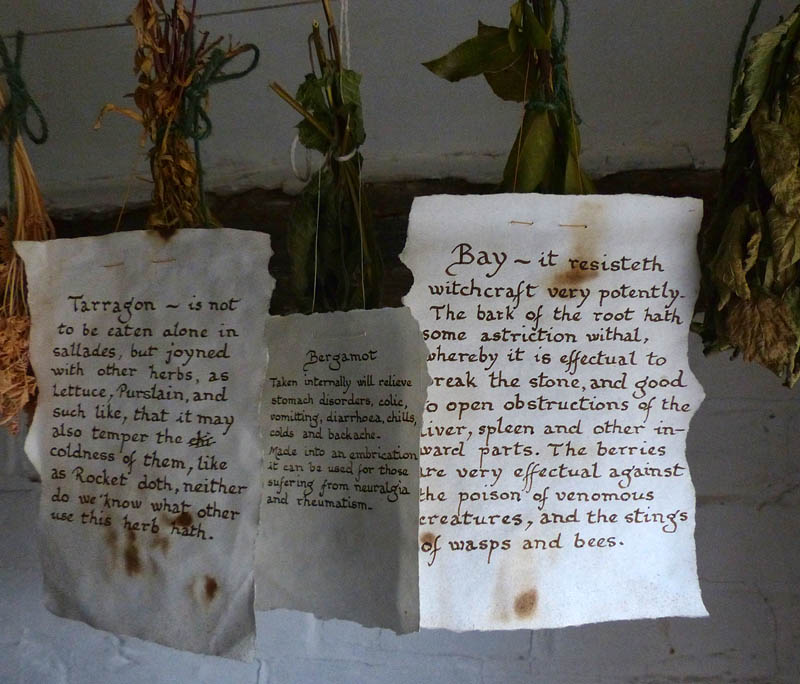 Tarragon ~ is not
to be eaten alone in
sallades, but joyned
with other herbs, as
Lettuce, Purslain, and
such like, that it may
also temper the
coldness of them, like
as Rocket doth, neither
do we know what other
use this herb hath.
Bergamot
Taken internally will relieve
stomach disorders, colic,
vomitting, diarrhoea, chills,
colds and backache.
Made into an embrication
it can be used for those
sufering from neuralgia
and rheumatism.
Bay ~ it resisteth
witchcraft very potently.
The bark of the root hath
some astriction withal,
whereby it is effectual to
break the stone, and good
to open obstructions of the
liver, spleen and other in-
ward parts. The berries
are very effectual against
the poison of venomous
creatures, and the stings
of wasps and bees.